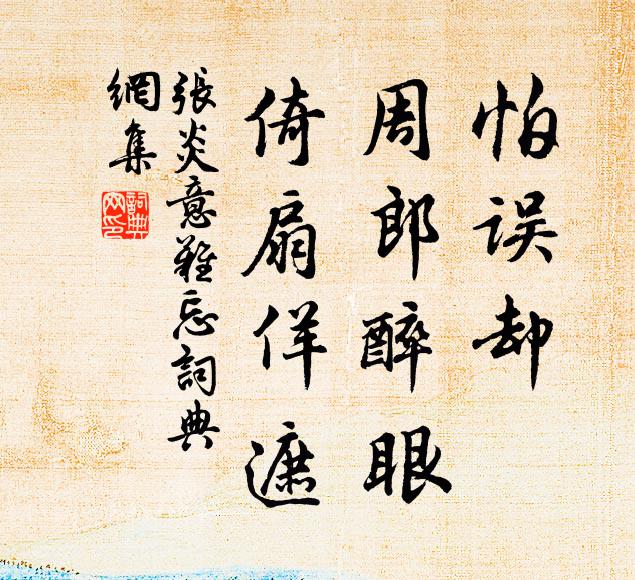 怕误却
周郎醉眼
倚扇佯遮
張炎意難忘詞典
網集
詞典网印